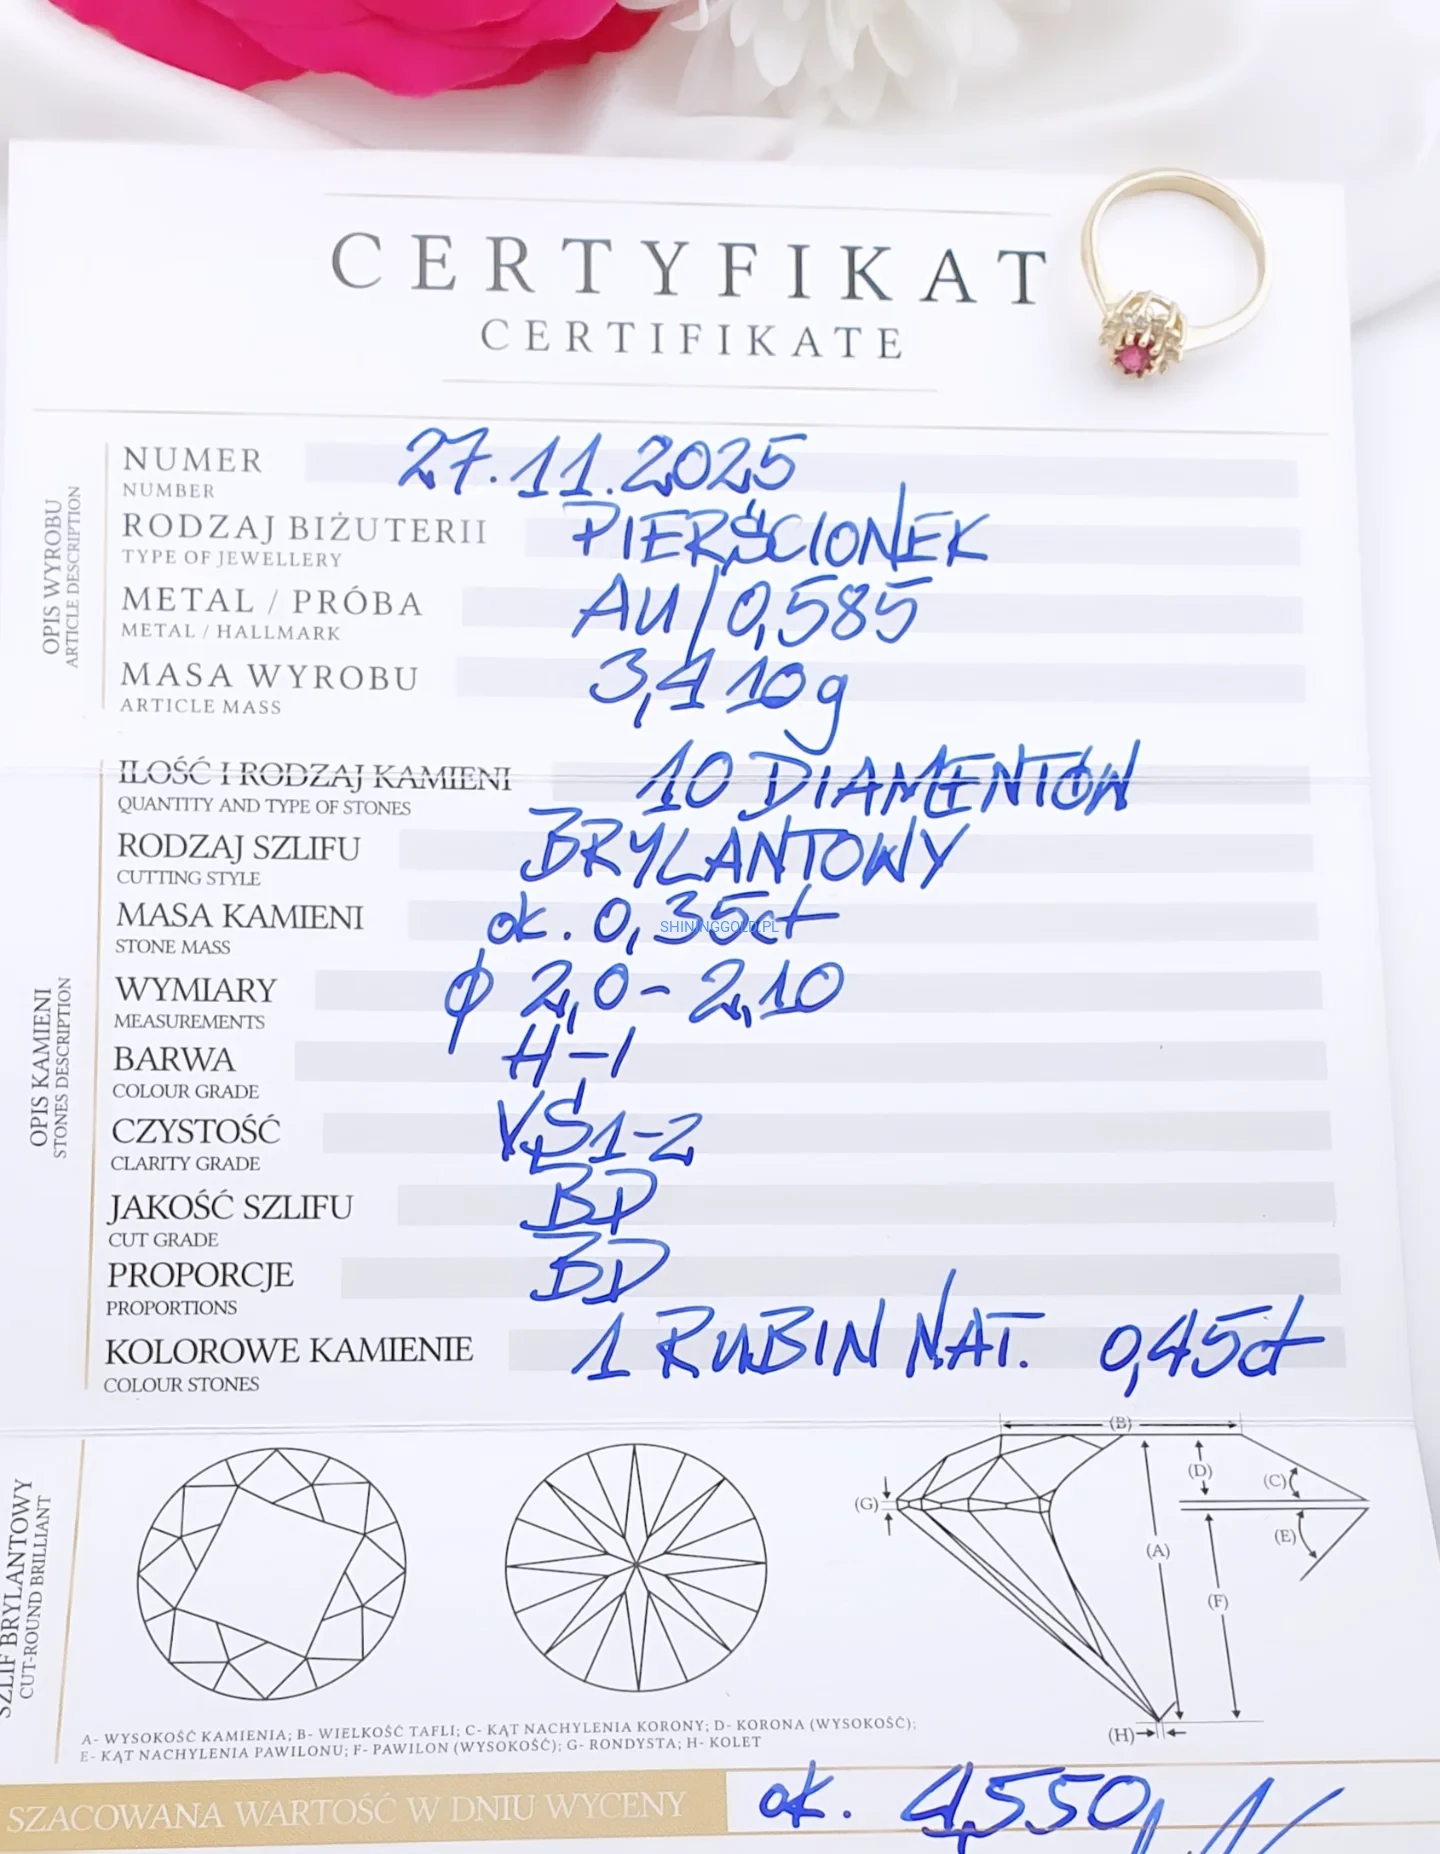 CERTYFIKAT
CERTIFIKATE
OPIS WYROBU
ARTICLE DESCRIPTION
NUMER 27.11.2025
NUMBER
RODZAJ BIŻUTERII PIERŚCIONEK
TYPE OF JEWELLERY
METAL / PRÓBA AU/0,585
METAL / HALLMARK
MASA WYROBU 3,410g
ARTICLE MASS
OPIS KAMIENI
STONES DESCRIPTION
ILOŚĆ I RODZAJ KAMIENI 10 DIAMENTÓW
QUANTITY AND TYPE OF STONES
RODZAJ SZLIFU BRYLANTOWY
CUTTING STYLE
MASA KAMIENI ok. 0,35ct
SHININGGOLD.PL
STONE MASS
WYMIARY ϕ 2,0-2,10
MEASUREMENTS
BARWA H-I
COLOUR GRADE
CZYSTOŚĆ VS1-2
CLARITY GRADE
JAKOŚĆ SZLIFU BD
CUT GRADE
PROPORCJE BD
PROPORTIONS
KOLOROWE KAMIENIE 1 RUBIN NAT. 0,45ct
COLOUR STONES
SZLIF BRYLANTOWY
CUT-ROUND BRILLIANT
(B)
(D)
(C)
(G)
(E)
(A)
(F)
(H)
A- WYSOKOŚĆ KAMIENIA; B- WIELKOŚĆ TAFLI; C- KĄT NACHYLENIA KORONY; D- KORONA (WYSOKOŚĆ);
E- KĄT NACHYLENIA PAWILONU; F- PAWILON (WYSOKOŚĆ); G- RONDYSTA; H- KOLET
SZACOWANA WARTOŚĆ W DNIU WYCENY ok. 4,550,